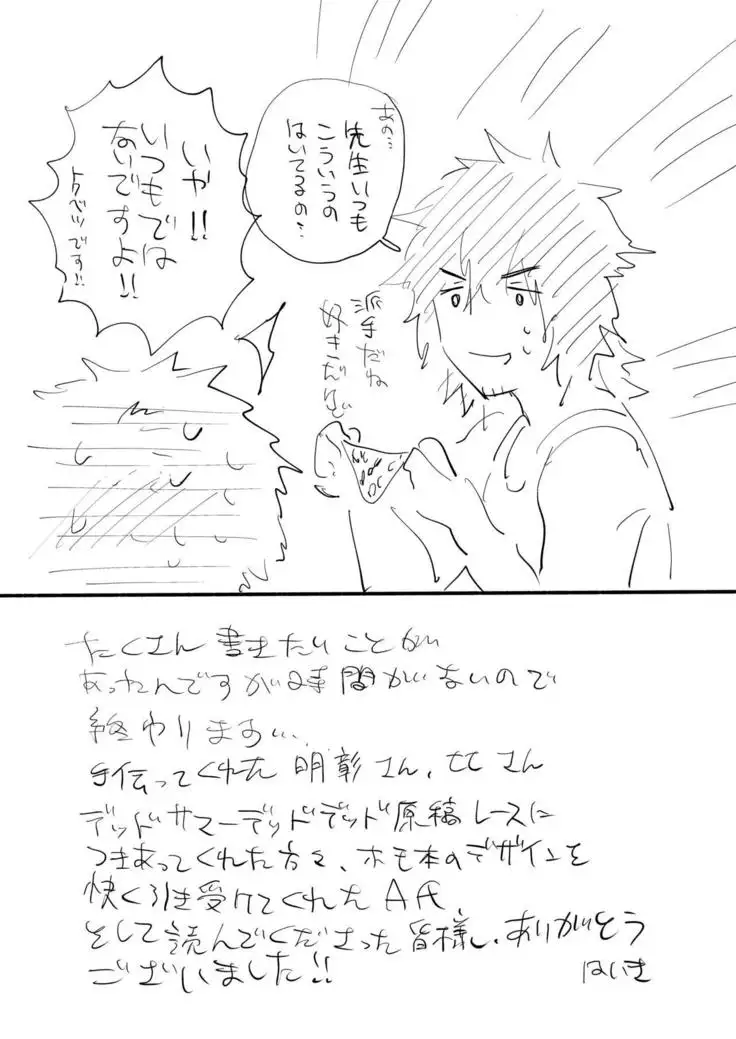 あの…
先生いつも
こういうの
はいてるの?
いや!!
いつもでは
ないですよ!!
トクベツです!!
派手だね
好きだけど
たくさん書きたいことが
あったんですが時間がないので
終わります…
手伝ってくれた明彰さん、ヒヒさん
デッドサマーデッドデッド原稿レースに
つきあってくれた方々、ホモ本のデザインを
快く引き受けてくれたA氏
そして読んでくださった皆様、ありがとう
ございました!!
はいき